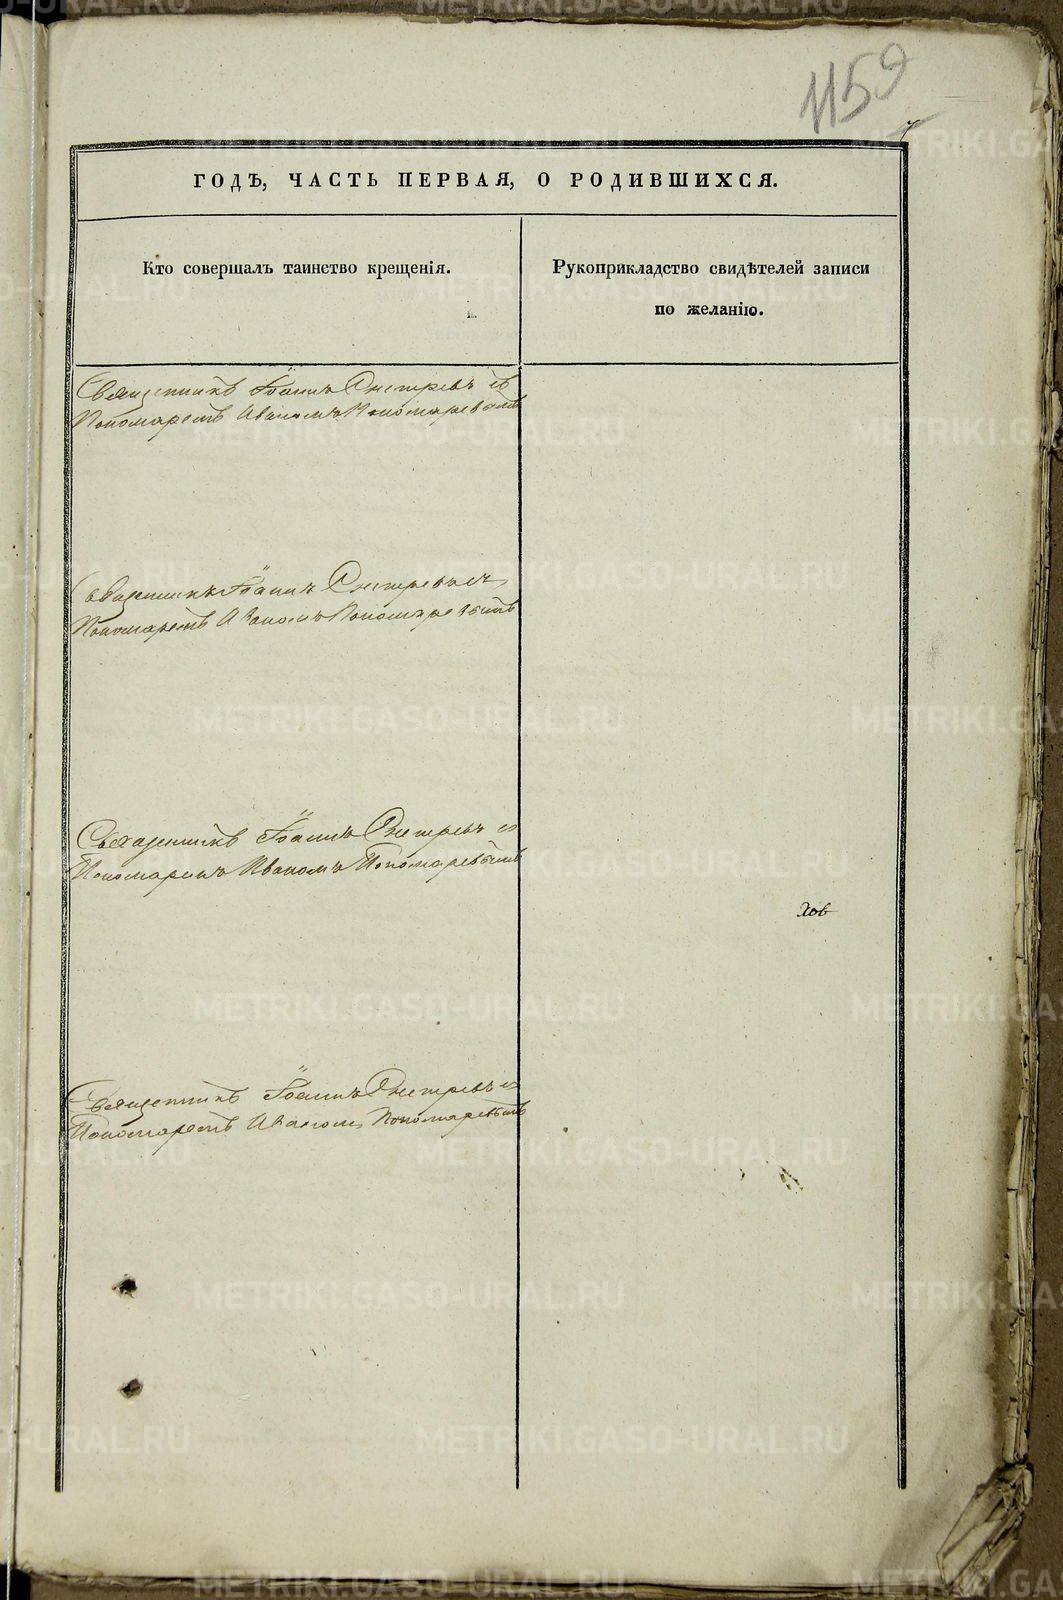 1159
ГОДЪ, ЧАСТЬ ПЕРВАЯ, О РОДИВШИХСЯ.
Кто совершалъ таинство крещенія.
Рукоприкладство свидѣтелей записи
по желанію.
Священникъ Іоаннъ съ
Пономаремъ Иваномъ Пономаревымъ
Священникъ Іоаннъ съ
Пономаремъ Иваномъ Пономаревымъ
Священникъ Іоаннъ съ
Пономаремъ Иваномъ Пономаревымъ
Священникъ Іоаннъ съ
Пономаремъ Иваномъ Пономаревымъ
METRIKI.GASO-URAL.RU